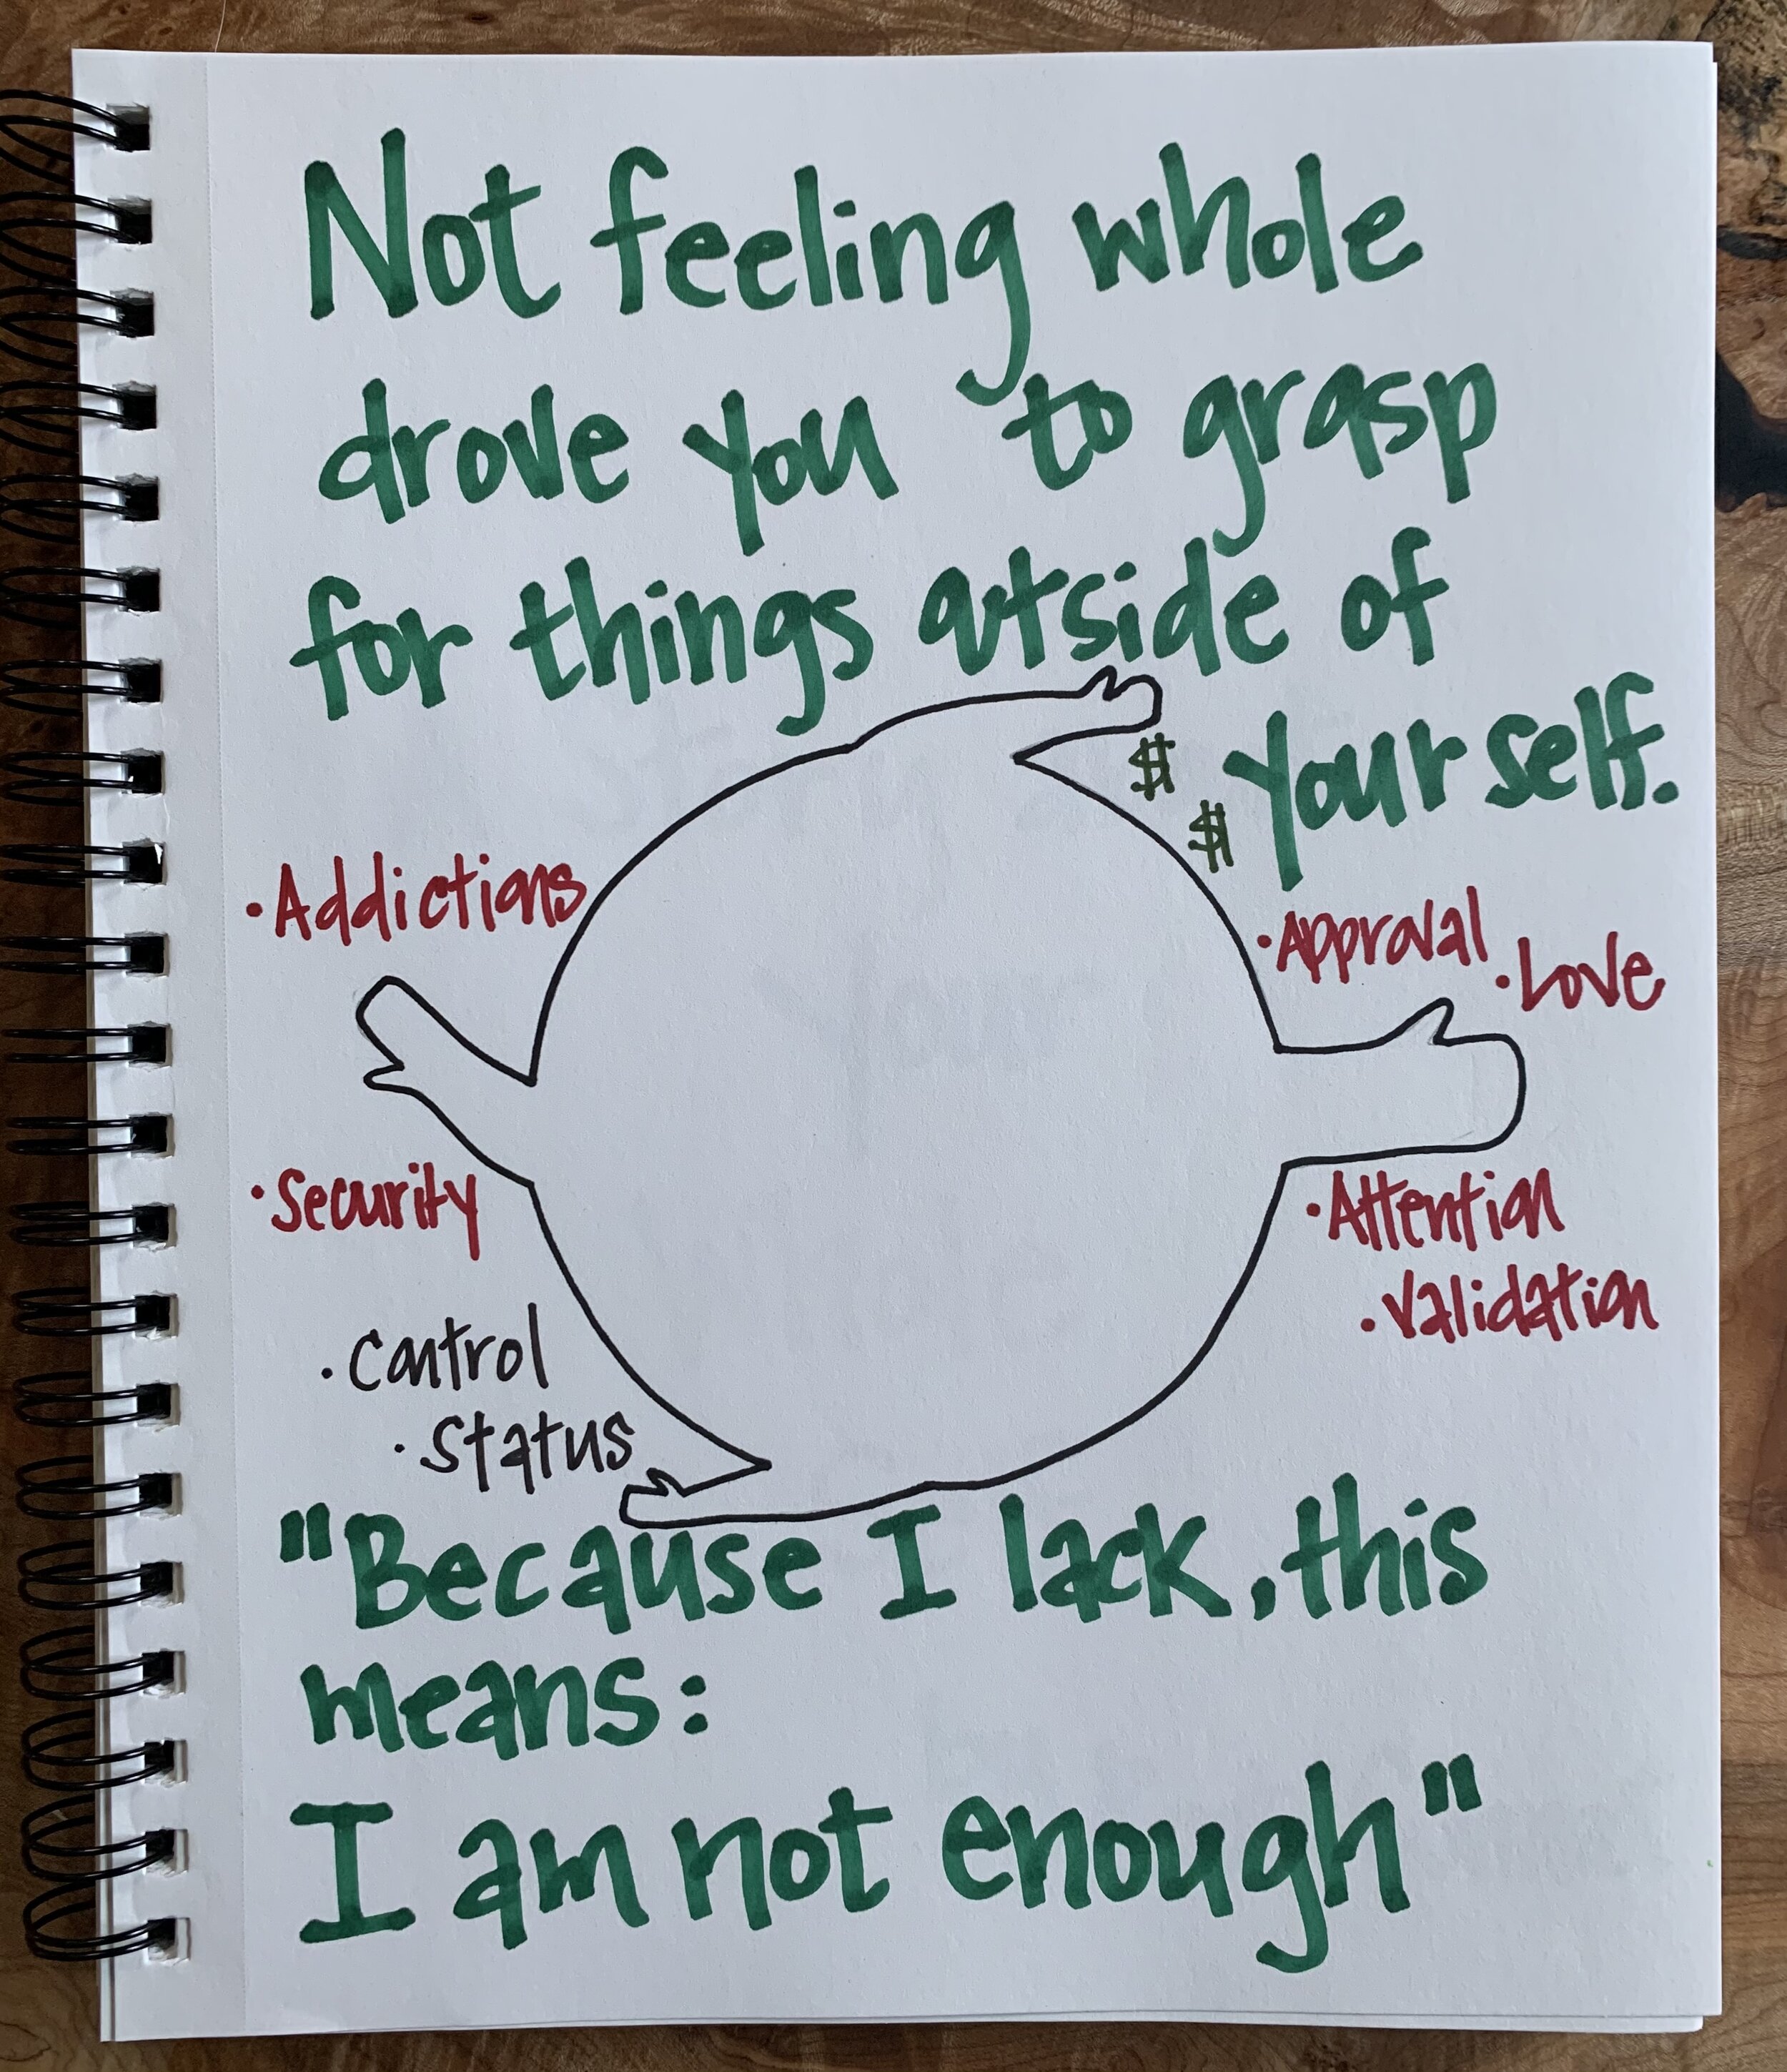 Not feeling whole
drove you to grasp
for things outside of
yourself.
$
$
• Addictions
• Approval
• Love
• Security
• Attention
• Validation
• Control
• Status
"Because I lack, this
means:
I am not enough"